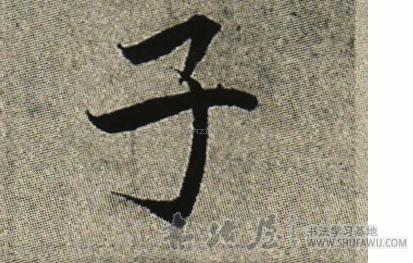 子
书法学习基地
WWW.SHUFAWU.COM